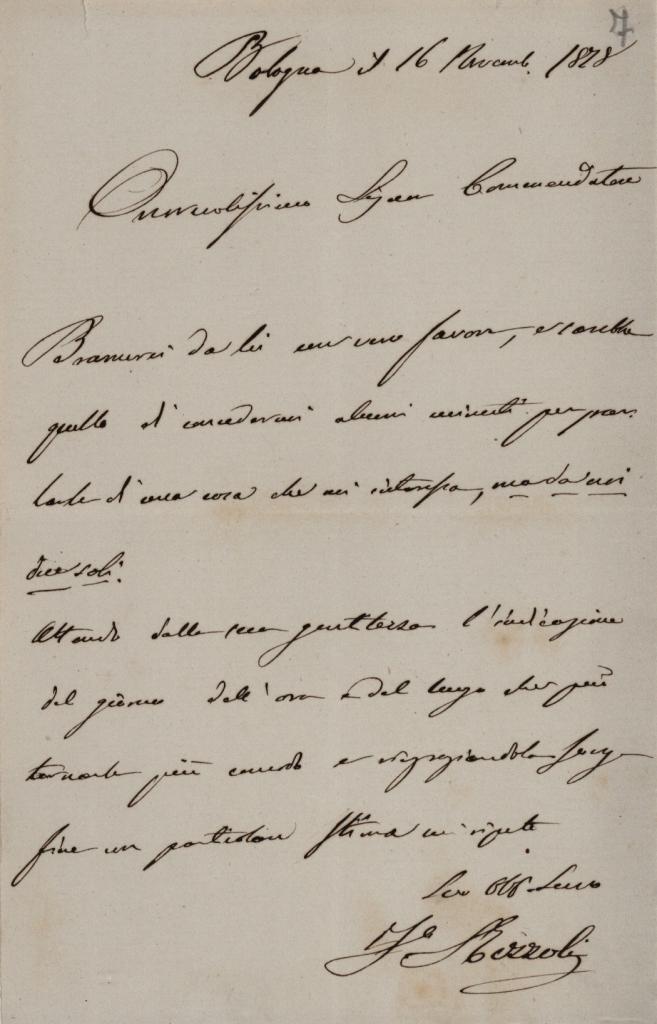 7
Bologna il 16 Novemb. 1878
Onorevolissimo Signor Commendatore
Bramerei da lei un vero favore, e sarebbe
quello di concedermi alcuni minuti per par=
larle di una cosa che mi interessa, ma da noi
due soli.
Attendo dalla sua gentilezza l'indicazione
del giorno dell'ora e del luogo che può
tornarle più comodo e ringraziandola
fine con particolare stima mi ripeto
Suo Obb. Servo
Rizzoli